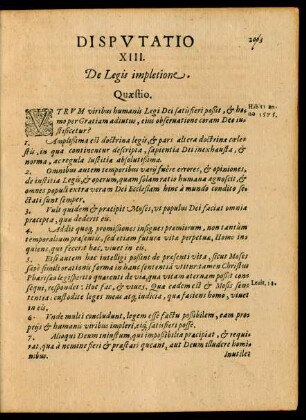 2013
DISPVTATIO
XIII.
De Legis impletione.
Quæstio.
VTRVM viribus humanis Legi Dei satisfieri possit, & ho-
mo per Gratiam adiutus, eius observatione coram Deo iu-
stificetur?
Habita an-
no 1575.
1. Amplissima est doctrina legis, & pars altera doctrinæ cœle-
stis, in qua continentur descripta, sapientia Dei inexhausta, &
norma, ac regula Iustitiæ absolutissima.
2. Omnibus autem temporibus varij fuêre errores, & opiniones,
de iustitia Legis, & operum, quam solam ratio humana agnoscit, &
omnes populi extra veram Dei Ecclesiam hinc à mundo condito se-
ctati sunt semper.
3. Vult quidem & præcipit Moses, vt populus Dei faciat omnia
præcepta, quæ dederit eis.
4. Addit quoq, promissiones insignes præmiorum, non tantùm
temporalium præsentis, sed etiam futuræ vitæ perpetuæ, Homo in-
quiens, qui fecerit hæc, vivet in eis.
5. Etsi autem hæc intelligi possent de præsenti vita, sicut Moses
sæpè similes rationes formæ in hanc sententiã vtitur: tamen Christus
Pharisæo legisperito quærenti de via, qua vitam æternam possit con-
sequi, respondet: Hoc fac, & vives, Quæ eadem est & Mosis sen-
tentia: custodite leges meas atq, iudicia, quæ faciens homo, vivet
in eis.
Levit. 18.
6. Vnde multi concludunt, legem esse factu possibilem, eam pro-
prijs & humanis viribus impleri, eiq, satisfieri posse.
7. Alioqui Deum iniustum, qui impossibilia præcipiat, & requi-
rat, quæ à nemine fieri & præstari queant, aut Deum illudere homi-
nibus.
inutiles